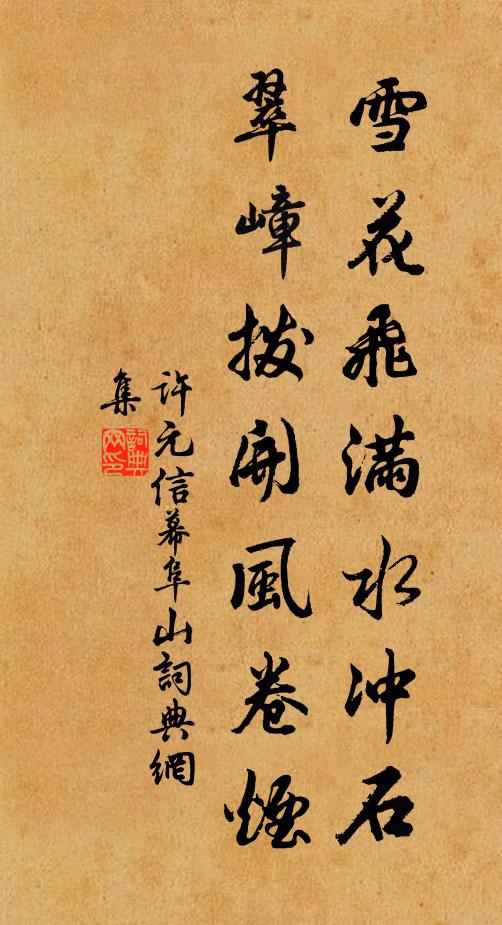 雪花飛滿水冲石
翠嶂拨開風卷煙
許元信幕阜山詞典網
集
詞典
网印